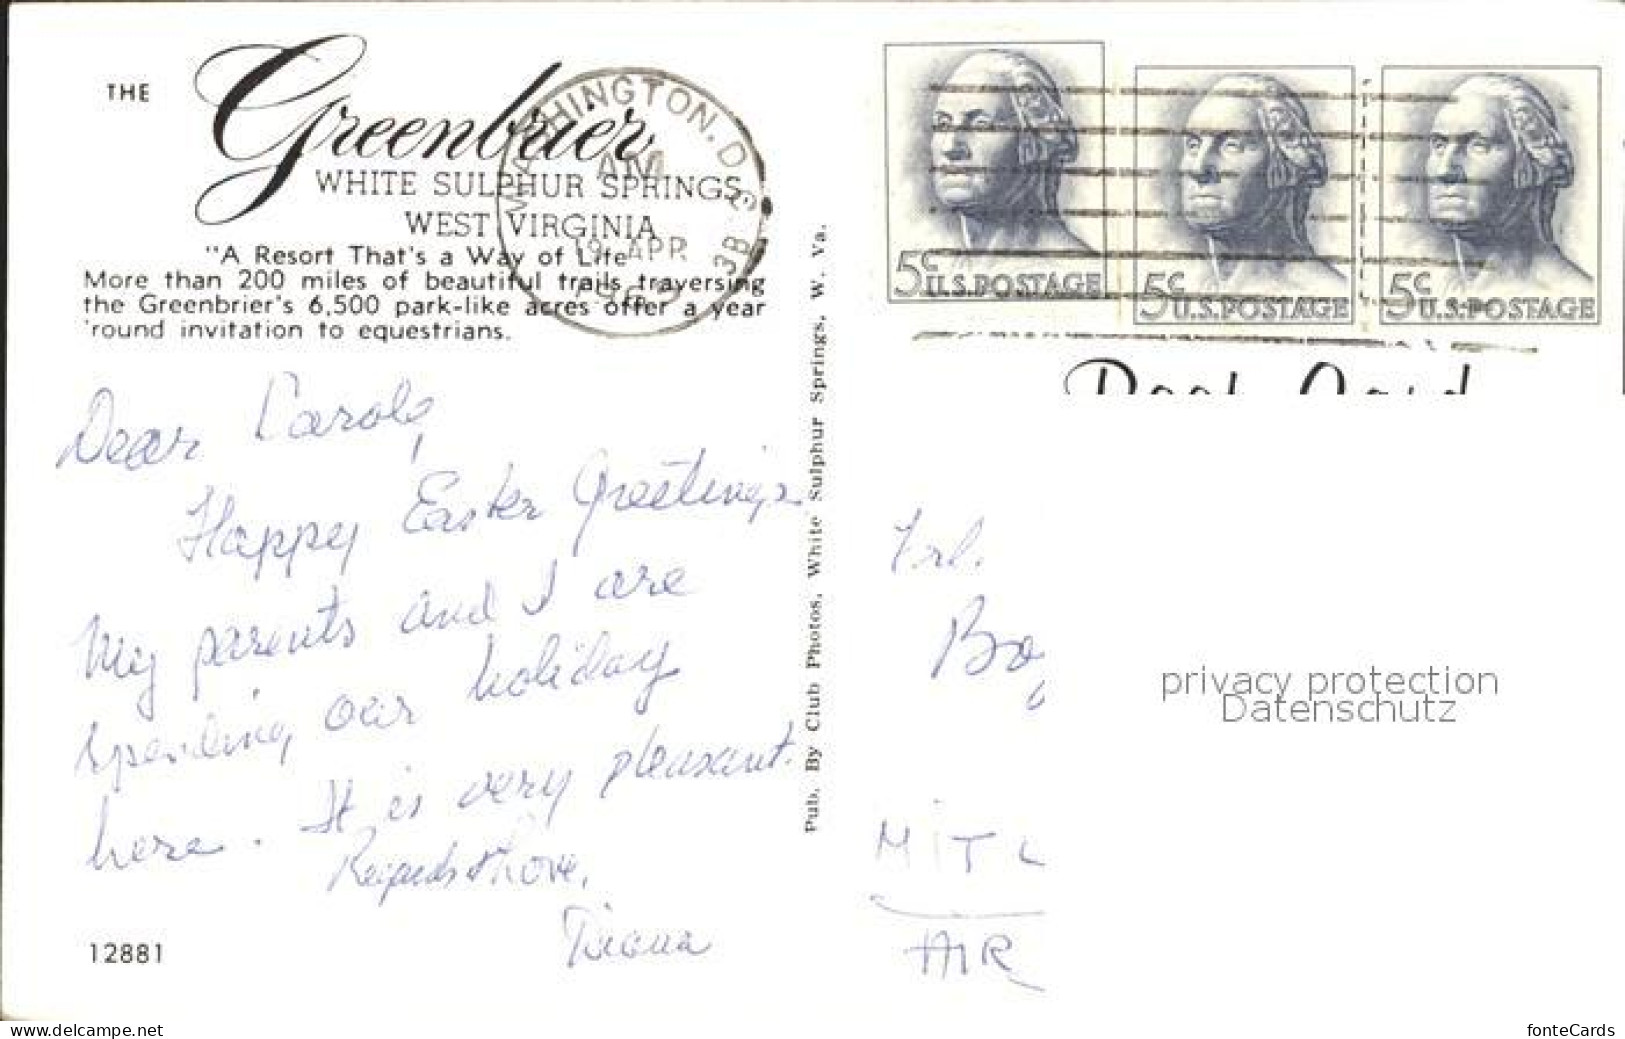 THE Greenbrier
WHITE SULPHUR SPRINGS
WEST VIRGINIA
"A Resort That's a Way of Life
More than 200 miles of beautiful trails traversing
the Greenbrier's 6,500 park-like acres offer a year
'round invitation to equestrians.
WASHINGTON, D.C.
AM
19 APR
3B
5c U.S. POSTAGE
5c U.S. POSTAGE
5c U.S. POSTAGE
Post Card
Dear Carole,
Happy Easter Greetings
My parents and I are
spending our holiday
here. It is very pleasant.
Regards & Love,
Diana
12881
Pub. By Club Photos, White Sulphur Springs, W. Va.
Frl.
AIR
privacy protection
Datenschutz
www.delcampe.net
fonteCards